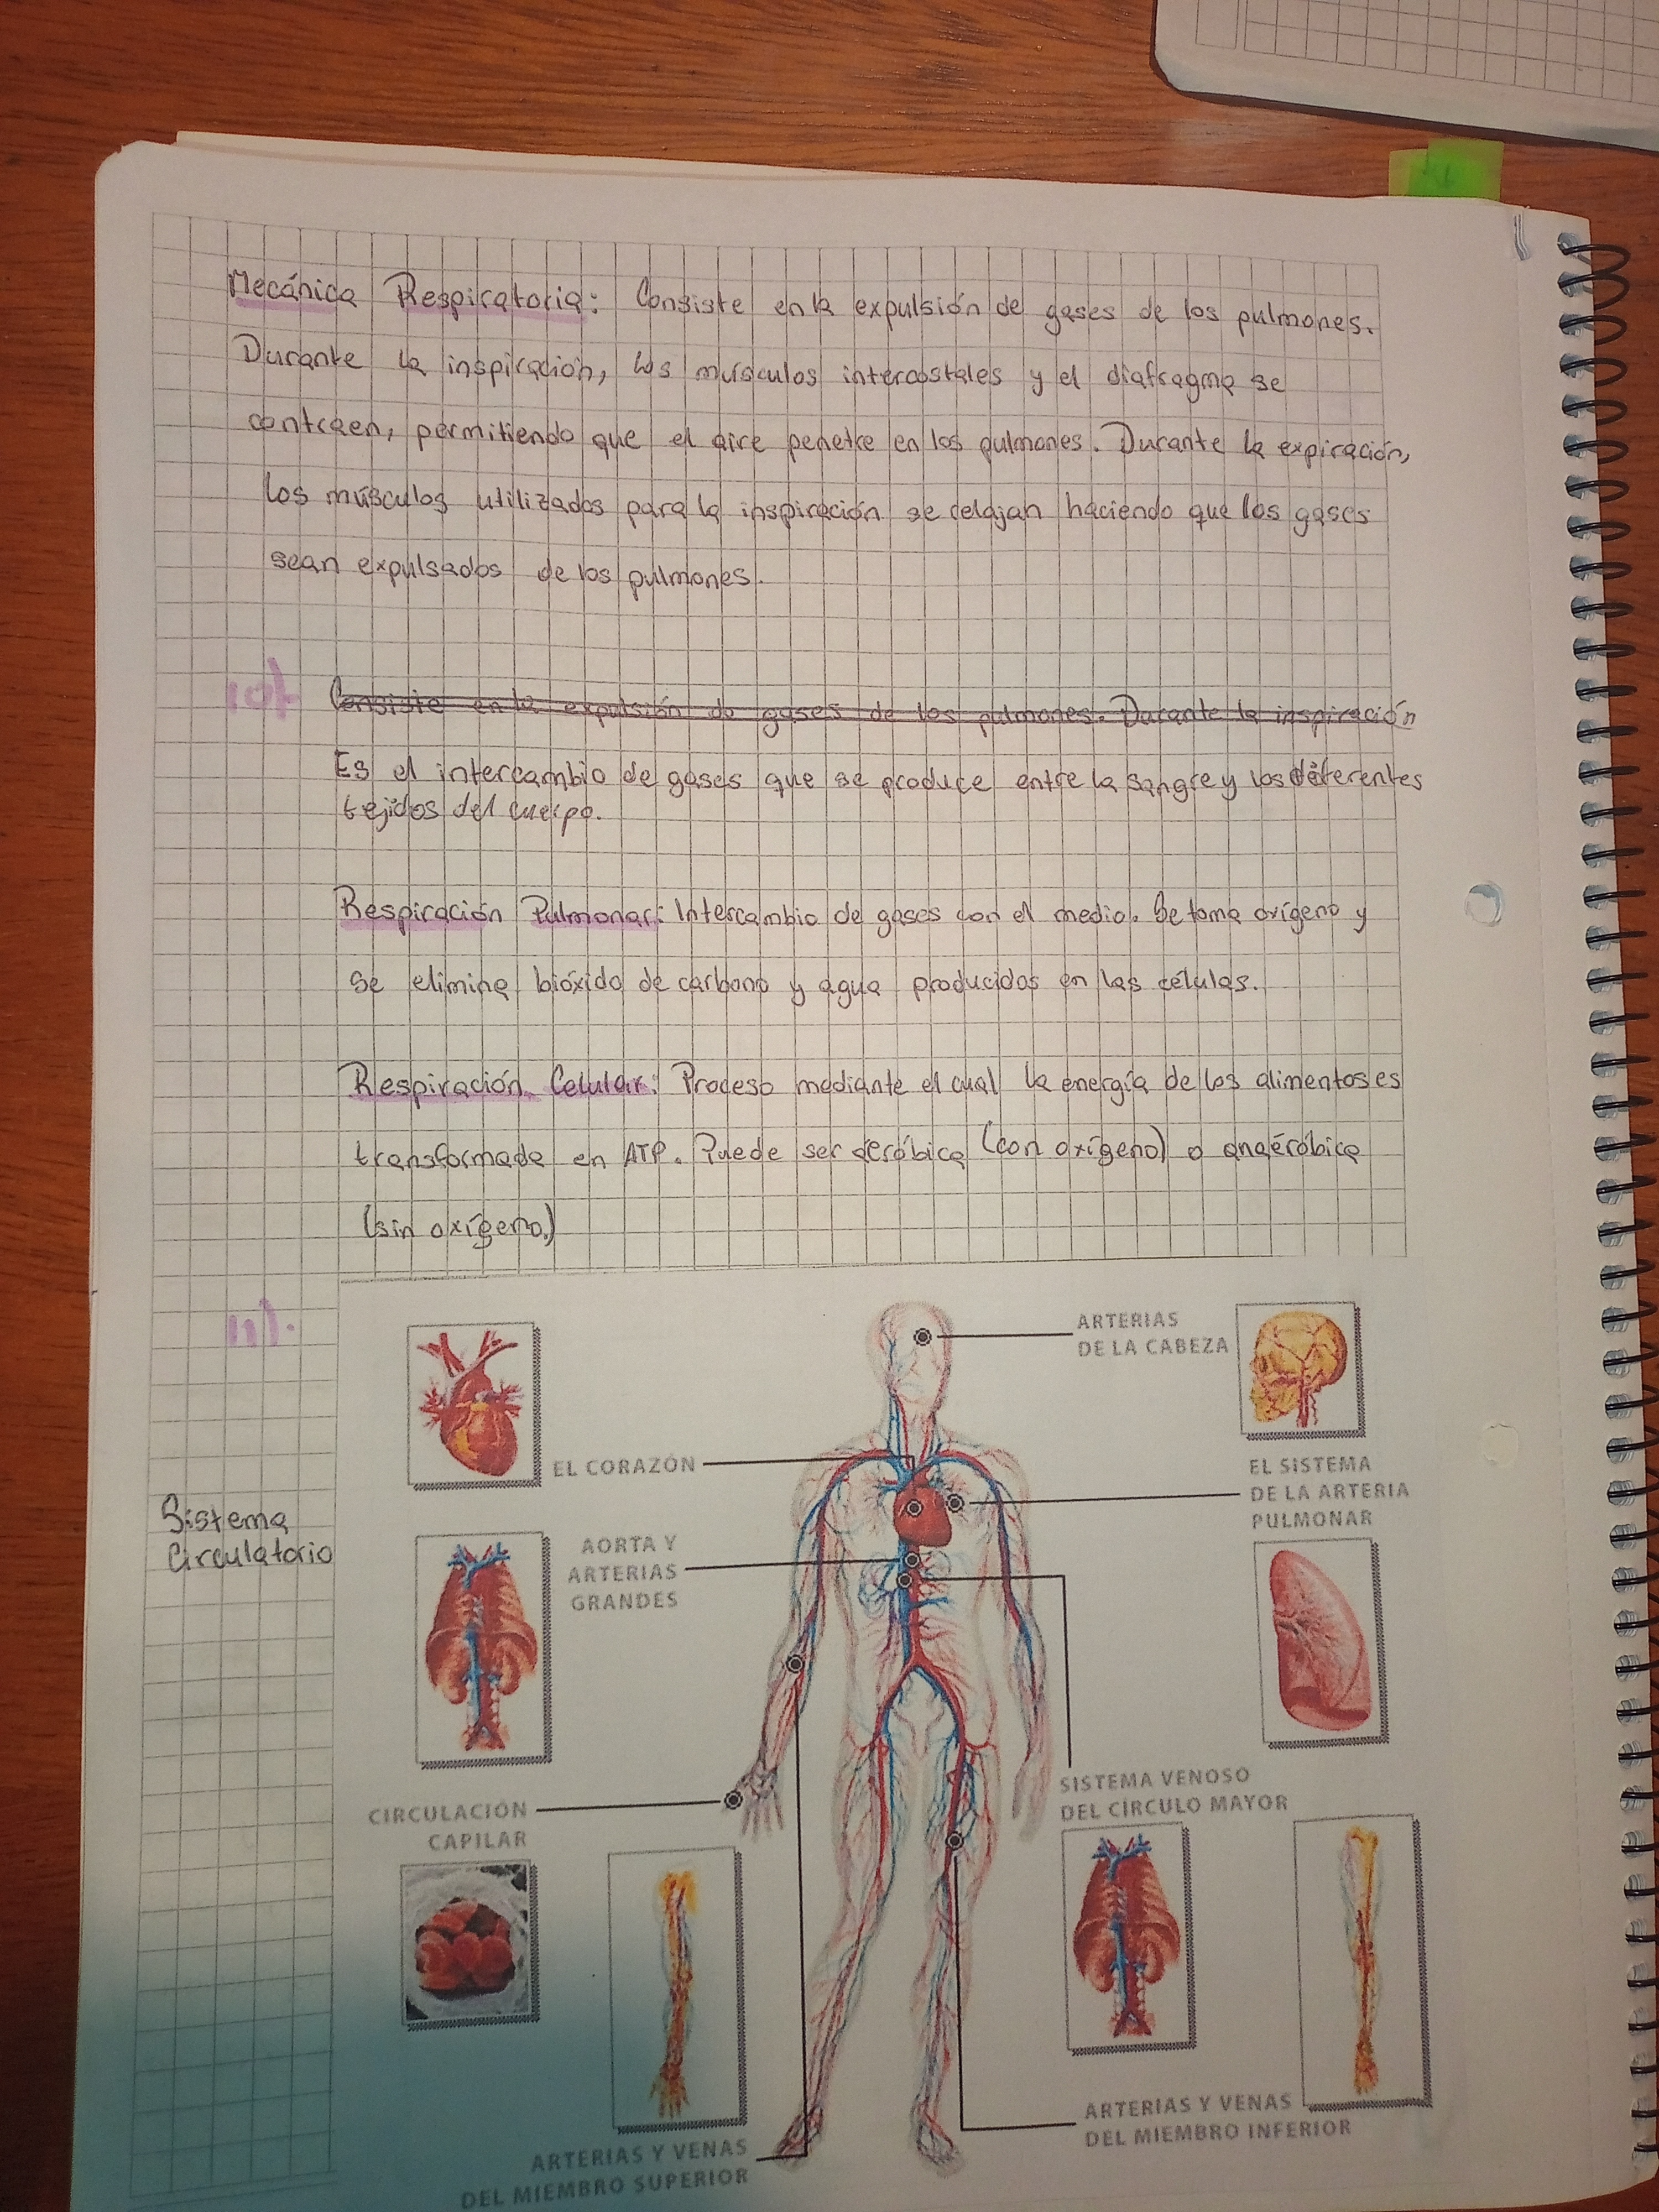 Mecánica Respiratoria: Consiste en la expulsión de gases de los pulmones.
Durante la inspiración, los músculos intercostales y el diafragma se
contraen, permitiendo que el aire penetre en los pulmones. Durante la expiración,
los músculos utilizados para la inspiración se relajan haciendo que los gases
sean expulsados de los pulmones.
10). Consiste en la expulsión de gases de los pulmones. Durante la inspiración
Es el intercambio de gases que se produce entre la sangre y los diferentes
tejidos del cuerpo.
Respiración Pulmonar: Intercambio de gases con el medio. Se toma oxígeno y
se elimina bióxido de carbono y agua producidos en las células.
Respiración Celular: Proceso mediante el cual la energía de los alimentos es
transformada en ATP. Puede ser aeróbica (con oxígeno) o anaeróbica
(sin oxígeno.)
11).
ARTERIAS
DE LA CABEZA
EL CORAZÓN
EL SISTEMA
DE LA ARTERIA
PULMONAR
Sistema
Circulatorio
AORTA Y
ARTERIAS
GRANDES
SISTEMA VENOSO
DEL CÍRCULO MAYOR
CIRCULACIÓN
CAPILAR
ARTERIAS Y VENAS
DEL MIEMBRO INFERIOR
ARTERIAS Y VENAS
DEL MIEMBRO SUPERIOR